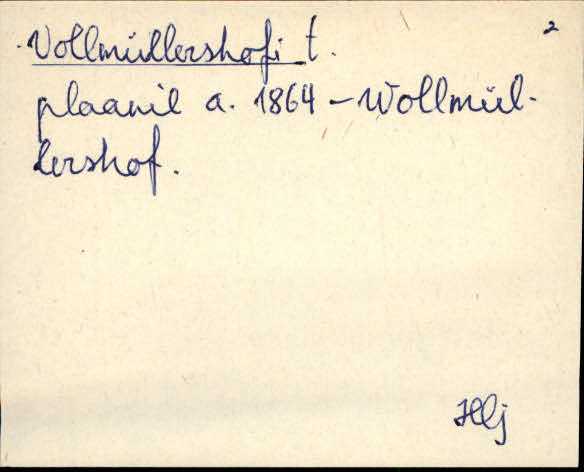 2
Vollmüllershofi t.
plaanil a. 1864 – Wollmül-
lershof.
Hlj